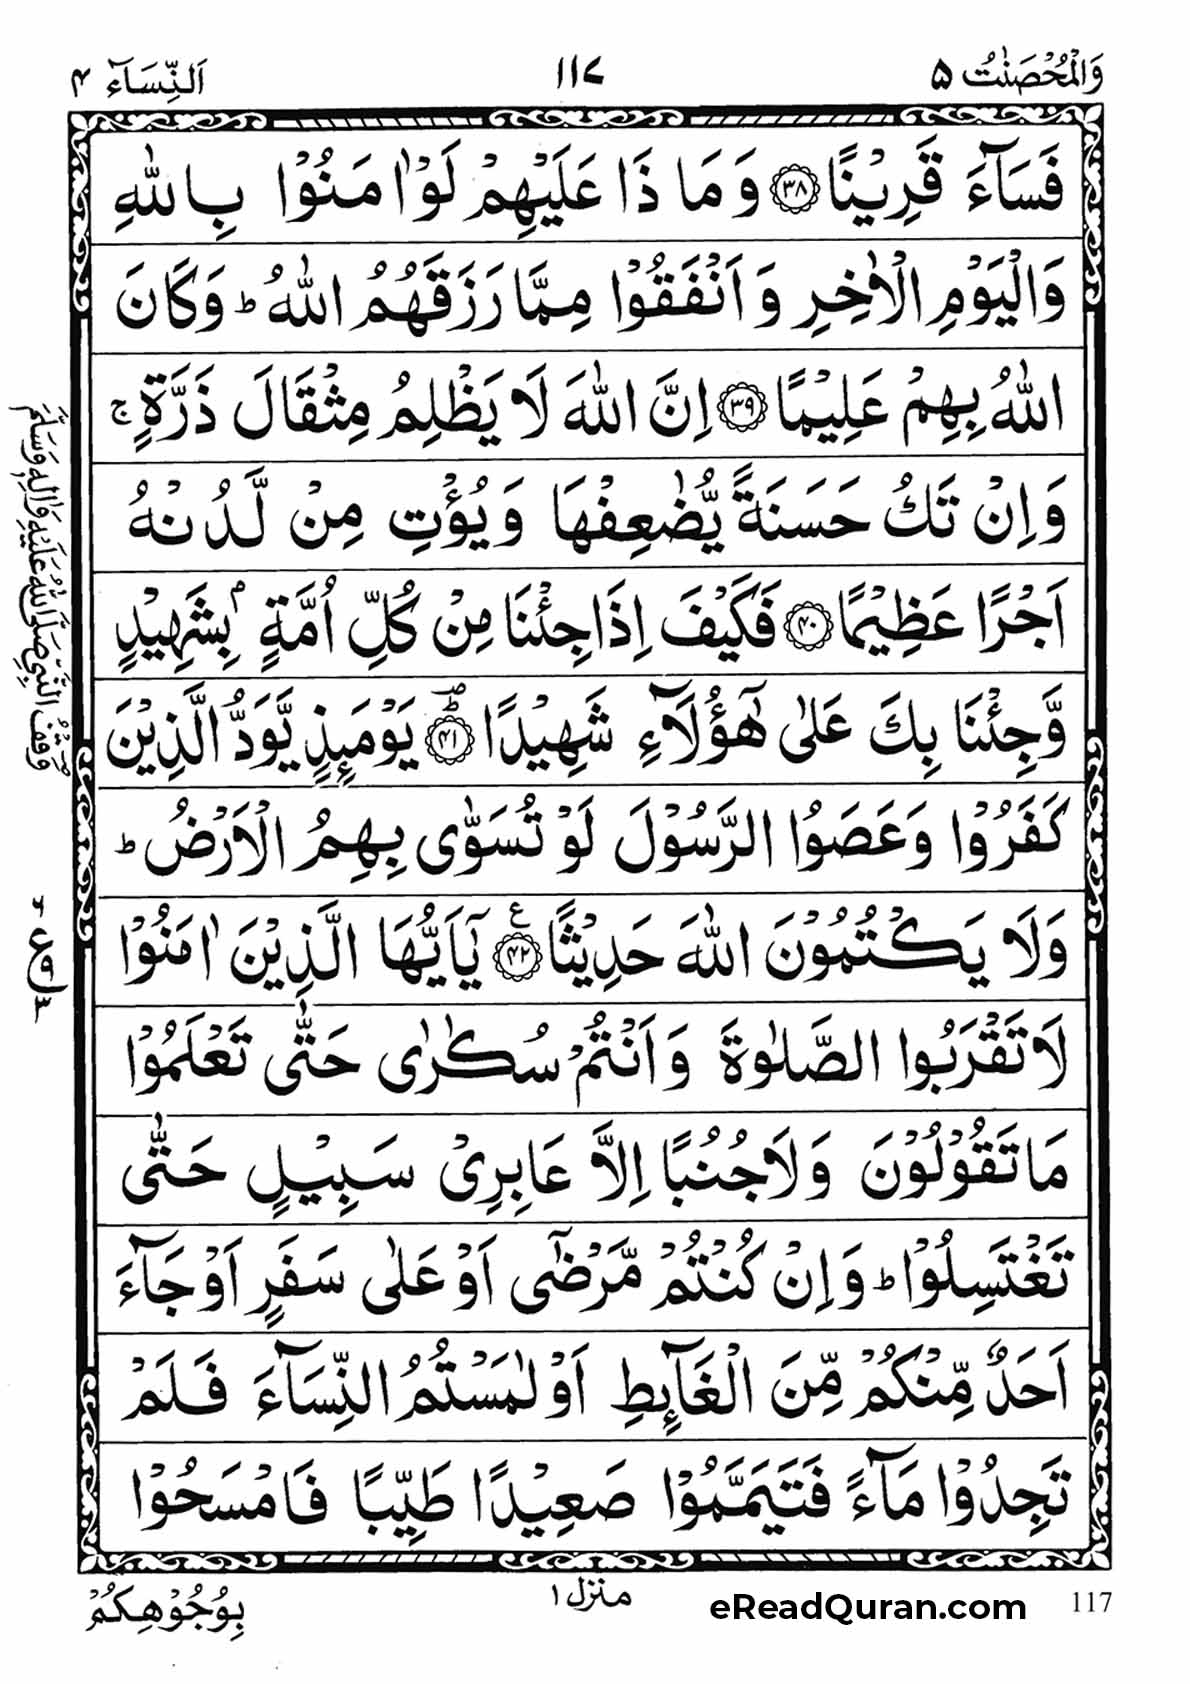 وَالْمُحْصَنٰتُ ٥
١١٧
اَلنِّسَآءِ ٤
فَسَآءَ قَرِيْنًا ﴿٣٨﴾ وَ مَا ذَا عَلَيْهِمْ لَوْ اٰمَنُوْا بِاللّٰهِ
وَالْيَوْمِ الْاٰخِرِ وَ اَنْفَقُوْا مِمَّا رَزَقَهُمُ اللّٰهُ ؕ وَكَانَ
اللّٰهُ بِهِمْ عَلِيْمًا ﴿٣٩﴾ اِنَّ اللّٰهَ لَا يَظْلِمُ مِثْقَالَ ذَرَّةٍ ۚ
وَ اِنْ تَكُ حَسَنَةً يُّضٰعِفْهَا وَ يُؤْتِ مِنْ لَّدُنْهُ
اَجْرًا عَظِيْمًا ﴿٤٠﴾ فَكَيْفَ اِذَا جِئْنَا مِنْ كُلِّ اُمَّةٍ ۭ بِشَهِيْدٍ
وَّجِئْنَا بِكَ عَلٰى هٰٓؤُلَآءِ شَهِيْدًا ؕؔ ﴿٤١﴾ يَوْمَئِذٍ يَّوَدُّ الَّذِيْنَ
كَفَرُوْا وَ عَصَوُا الرَّسُوْلَ لَوْ تُسَوّٰى بِهِمُ الْاَرْضُ ؕ
وَلَا يَكْتُمُوْنَ اللّٰهَ حَدِيْثًا ﴿٤٢﴾ ع يٰٓاَيُّهَا الَّذِيْنَ اٰمَنُوْا
لَا تَقْرَبُوا الصَّلٰوةَ وَ اَنْتُمْ سُكٰرٰى حَتّٰى تَعْلَمُوْا
مَا تَقُوْلُوْنَ وَلَا جُنُبًا اِلَّا عَابِرِيْ سَبِيْلٍ حَتّٰى
تَغْتَسِلُوْا ؕ وَ اِنْ كُنْتُمْ مَّرْضٰٓى اَوْ عَلٰى سَفَرٍ اَوْ جَآءَ
اَحَدٌ مِّنْكُمْ مِّنَ الْغَآئِطِ اَوْ لٰمَسْتُمُ النِّسَآءَ فَلَمْ
تَجِدُوْا مَآءً فَتَيَمَّمُوْا صَعِيْدًا طَيِّبًا فَامْسَحُوْا
وقف النبي صلى الله عليه واٰله وسلم
بِوُجُوْهِكُمْ
منزل ١
eReadQuran.com
117